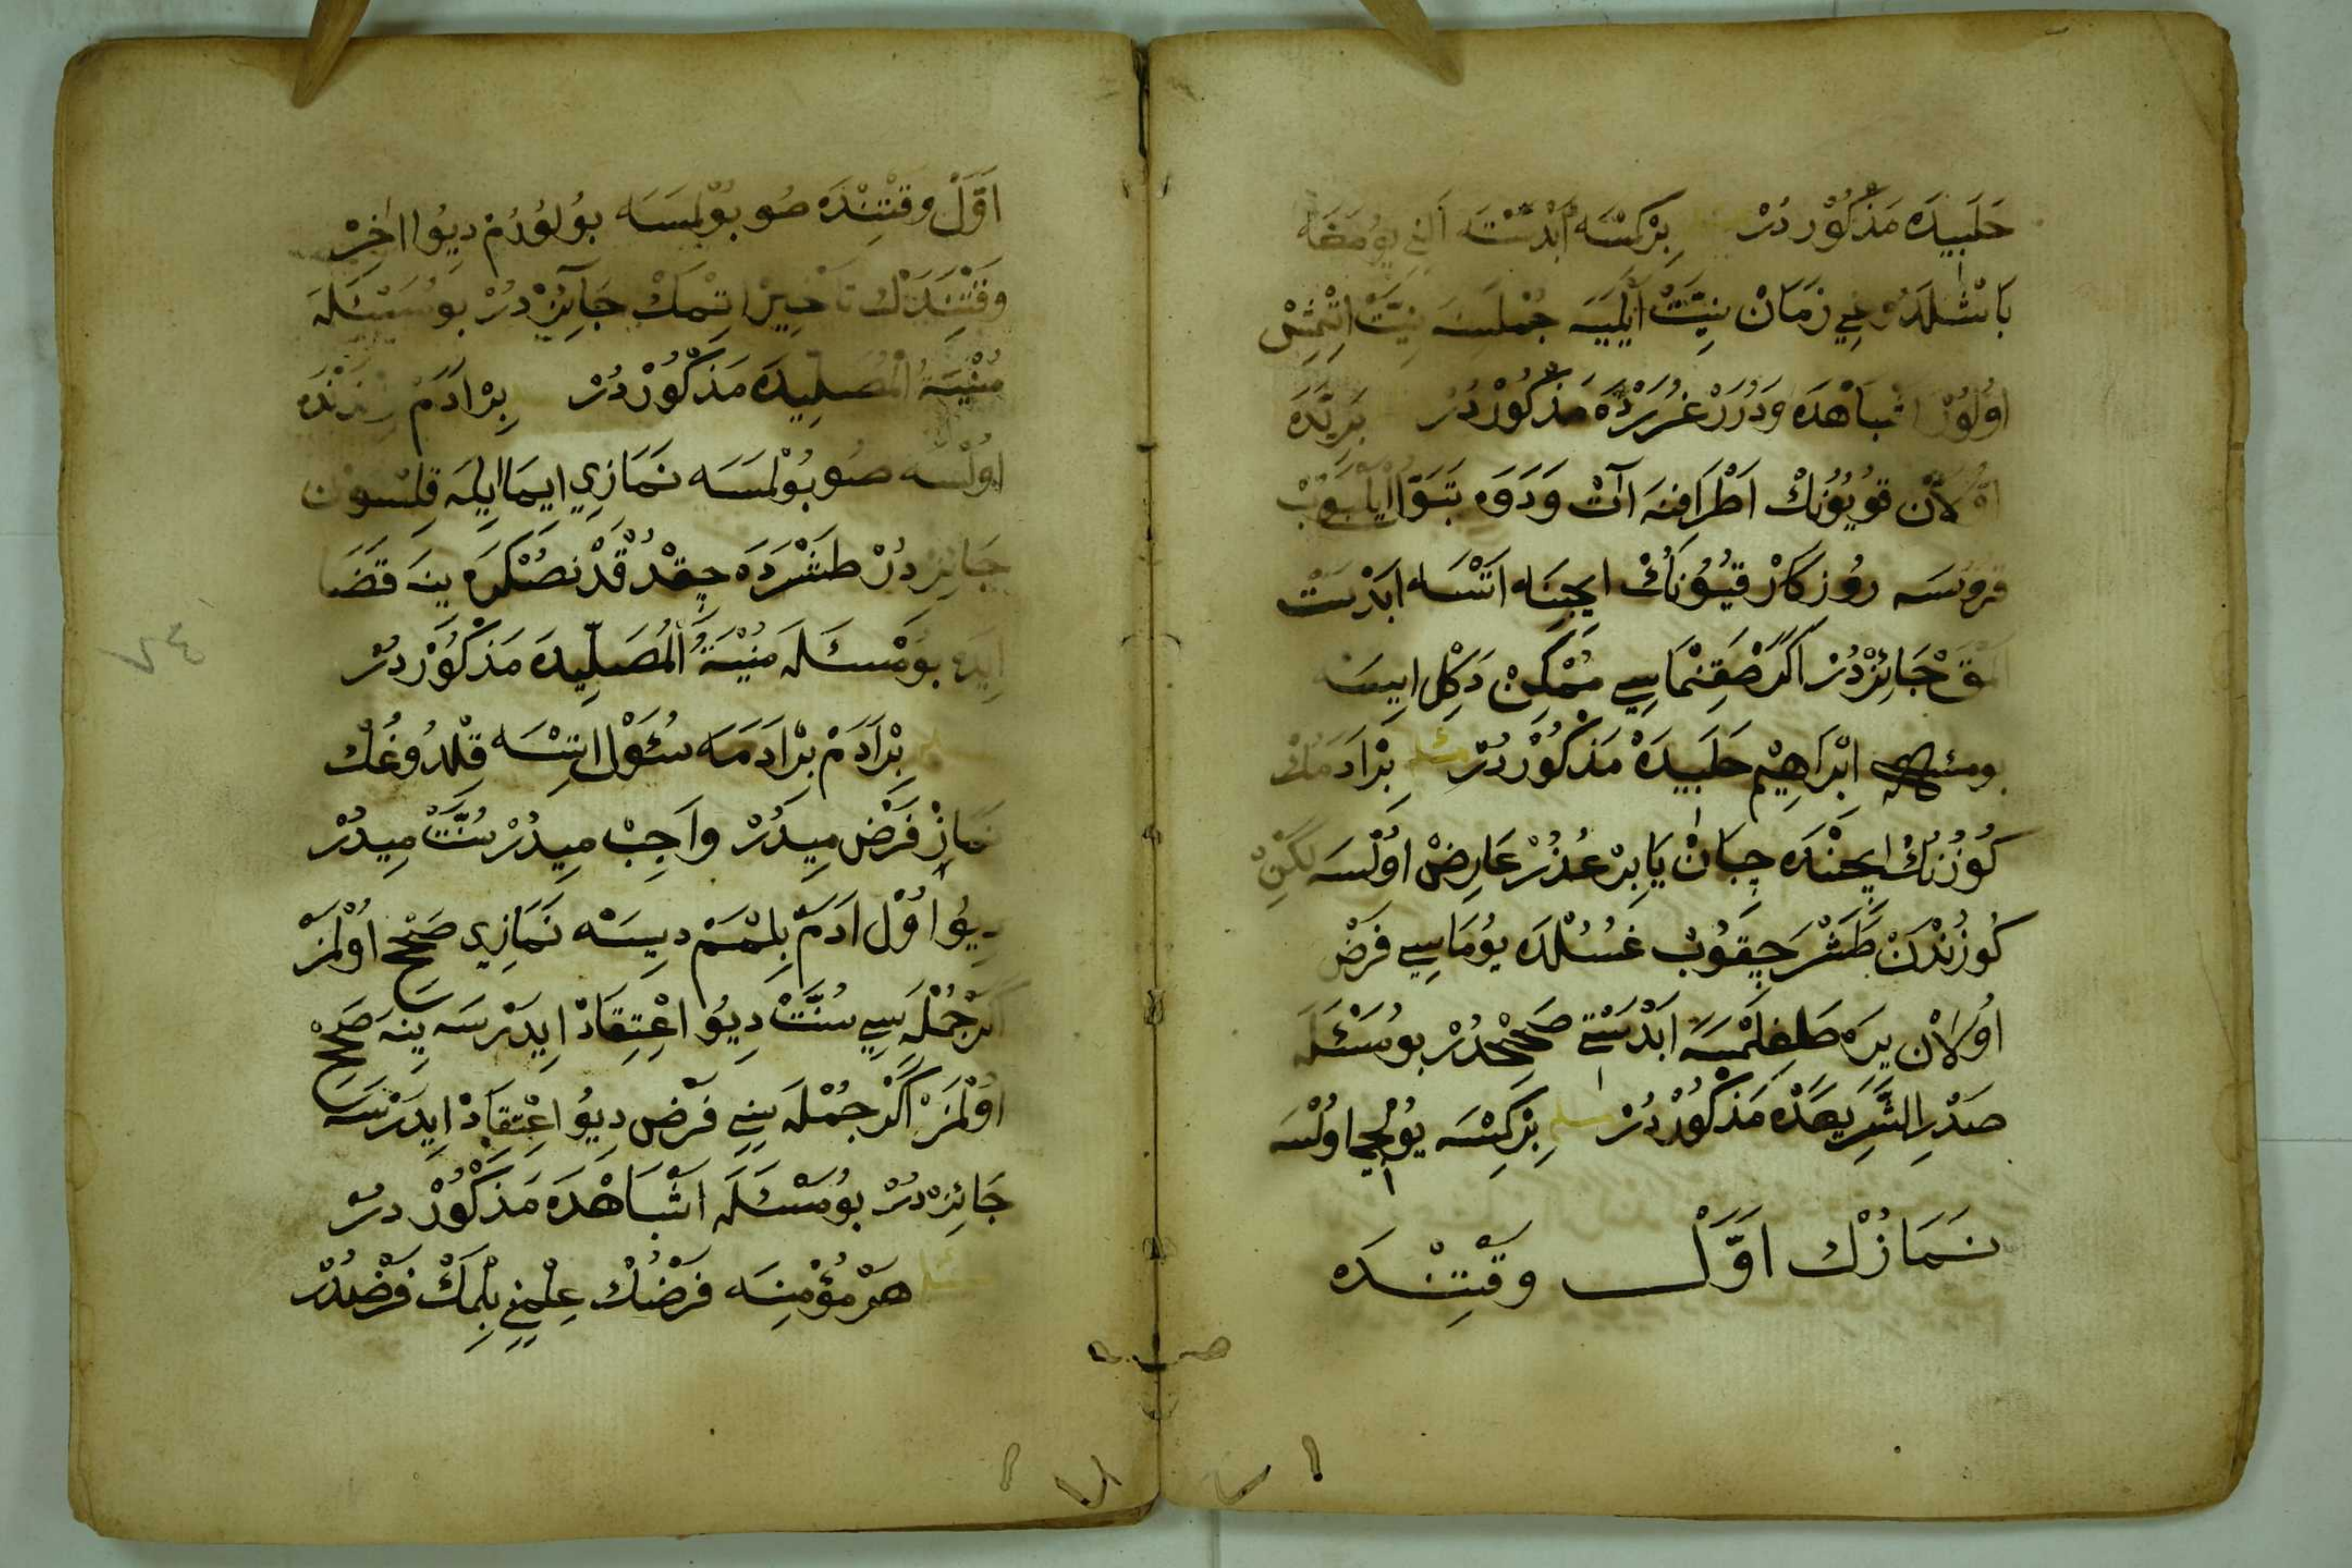 حَلَبِيدَه مَذْكُوْر دُرْ بِرْكِسَه اَبْدَسْتَه اَلِنِ يُومَغَه
بَاشْلَدُوغِي زَمَانْ نِيَّتْ اَيْلَيَه جُمْلَسِنَه نِيَّتْ اِتْمِشْ
اوُلوُرْ اَشْبَاهْدَه وَدُرَرْ غُرَرْدَه مَذْكُوْرْدُرْ بَرِيَّدَه
اوُلَانْ قُويُونُكْ اَطْرَافِنَه آتْ وَدَوَه تَبَوَّل ايلَيُوبْ
قُرُوسَه رُوزكَارْ قُيُونُكْ ايچِنَه اَتْسَه اَبْدَسْتْ
اَلْمَقْ جَائِزْدُرْ اَكَرْ صَقِنْمَاسِي مُمْكِنْ دَكِلْ ايسَه
بومسئله اِبْرَاهِيمْ حَلَبِيدَهْ مَذْكُوْرْدُرْ مسئله بِرْاَدَمُكْ
كُوزُنُكْ ايچِنْدَه چِبَانْ يَا بِرْ عُذُرْ عَارِضْ اوُلْسَه لَكِنْ
كُوزُنْدَنْ طَشْرَ چِقُوبْ غُسُلْدَه يُومَاسِي فَرْضْ
اوُلَانْ يِرَه طَاغِلْمَسَه اَبْدَسْتِي صَحِيحْدُرْ بُو مَسْئَلَه
صَدْرِ الشَّرِيعَدَه مَذْكُوْرْدُرْ مسئله بِرْكِسَه يُولْجِي اوُلْسَه
نَمَازُكْ اَوَّلْ وَقْتِنْدَه
اَوَّلْ وَقْتِنْدَه صُو بُوْلْمَسَه بُولُوُرُمْ دِيُو اٰخِرْ
وَقْتِنَدَكْ تَأخِيرْ اِتْمَكْ جَآئِزْدُرْ بُو مَسْئَلَه
مُنْيَةُ الْمُصَلِّيدَه مَذْكُوْرْدُرْ بِرْ اَدَمْ زِنْدَنْدَه
اوُلْسَه صُو بُوْلْمَسَه نَمَازِي ايمَا ايلَه قِلْسُونْ
جَائِزْدُرْ طَشْرَدَه چِقْدُقْدَنْصُكْرَه يِنَه قَضَا
اِيدَه بُو مَسْئَلَه مُنْيَةُ الْمُصَلِّيدَه مَذْكُوْرْدُرْ
مسئله بِرْاَدَمْ بِرْاَدَمَه سُئَوْل اِتْسَه قِلْدُوغُكْ
نَمَازْ فَرْضْ مِيدُرْ وَاجِبْ مِيدُرْ سُنَّتْ مِيدُرْ
دِيُو اوُلْ اَدَمْ بِلْمَمْ دِيسَه نَمَازِي صَحِيحْ اوُلْمَزْ
اَكَرْ جُمْلَه سِي سُنَّتْ دِيُو اِعْتِقَادْ اِيدَرْسَه يِنَه صَحِيحْ
اوُلْمَزْ اَكَرْ جُمْلَه يِنِي فَرْضْ دِيُو اِعْتِقَادْ اِيدَرْسَه
جَائِزْدُرْ بُو مَسْئَلَه اَشْبَاهْدَه مَذْكُوْرْدُرْ
مسئله هَرْ مُؤْمِنَه فَرْضُكْ عِلْمِنِي بِلْمَكْ فَرْضْدُرْ